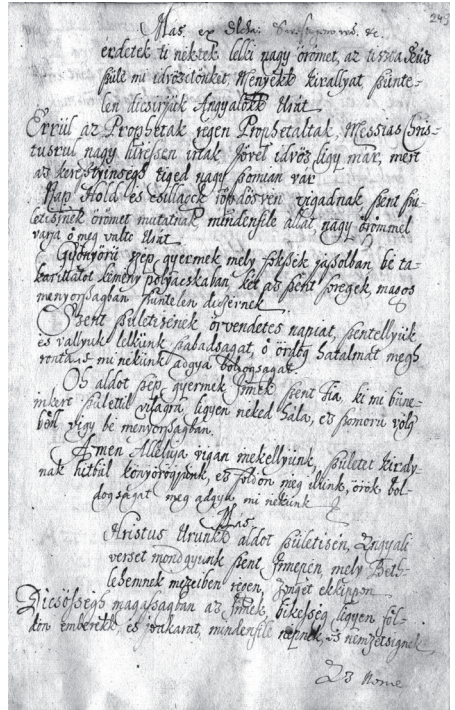 249
Mas ex
érdetek ti néktek lelki nagy örömet, az tiszta szüz
szüle mi idvözitönket, Menyekk kirallyat szünte-
len dicsirjük Angyalokk Urát
Errül az Prophetak regen Prophetaltak, Messias Chris-
tusrul nagy hiressen irtak Jövel idvös ligy mar, mert
az keresztyinsegh tiged nagy szomian var
Nap Hold es csillagok röpdösven vigadnak szent szü-
letisinek örömet mutatnak mindenfile allat nagy örömmel
varja ö meg valto Urat
Gyönyörü szep gyermek mely szessek jaszolban be ta-
karittatot kemeny polyacskaban, kit az szent seregek, magos
menyorszagban szüntelen dicsirnek
Szent születisenek örvendetes napiat, szentellyük
és vallyuk lelkünk szabadsagat, ö ördög hatalmat megh
ronta, mi nekünk adgya boldogsagat
Oh aldot szep gyermek Istennek szent fia, ki mi büne-
inkert születtil vilagra ligyen neked hala, es szomoru völgy
böl, vigy be menyorszagban.
Amen Alleluja vigan mekellyünk, születet kiraly-
nak hitbül könyörögjünk, es földön meg ilünk, örök bol-
dogsagat meg adgya mi nekünk
Mas
Kristus Urunkk aldot születisen, Angyali
verset mondgyunk szent Innepen mely Beth-
lehemnek mezeiben regen, zöngöt ekkippen
Dicsössegh magassagban az Istennek, bikesseg ligyen föl-
dön emberekk, es joakarat, mindenfile nepnek, es nemzetsignek
Az Nome